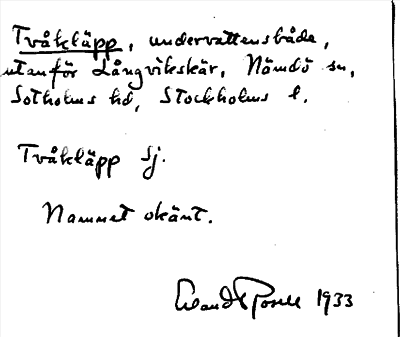 Tvåkläpp, undervattensbåde,
utanför Långvikskär, Nämdö sn,
Sotholms hd, Stockholms l.
Tvåkläpp Sj.
Namnet okänt.
1933